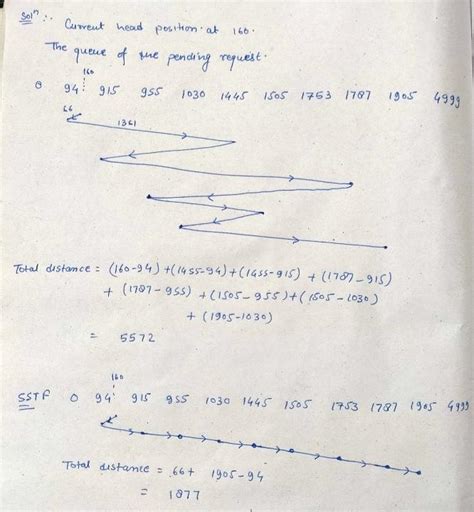 Solⁿ :. Current head position at 160.
The queue of the pending request.
160
0 94 915 955 1030 1445 1505 1753 1787 1905 4999
66
1361
Total distance = (160-94) + (1455-94) + (1455-915) + (1787-915)
+ (1787-955) + (1505-955) + (1505-1030)
+ (1905-1030)
= 5572
160
SSTF 0 94 915 955 1030 1445 1505 1753 1787 1905 4999
Total distance = 66 + 1905-94
= 1877